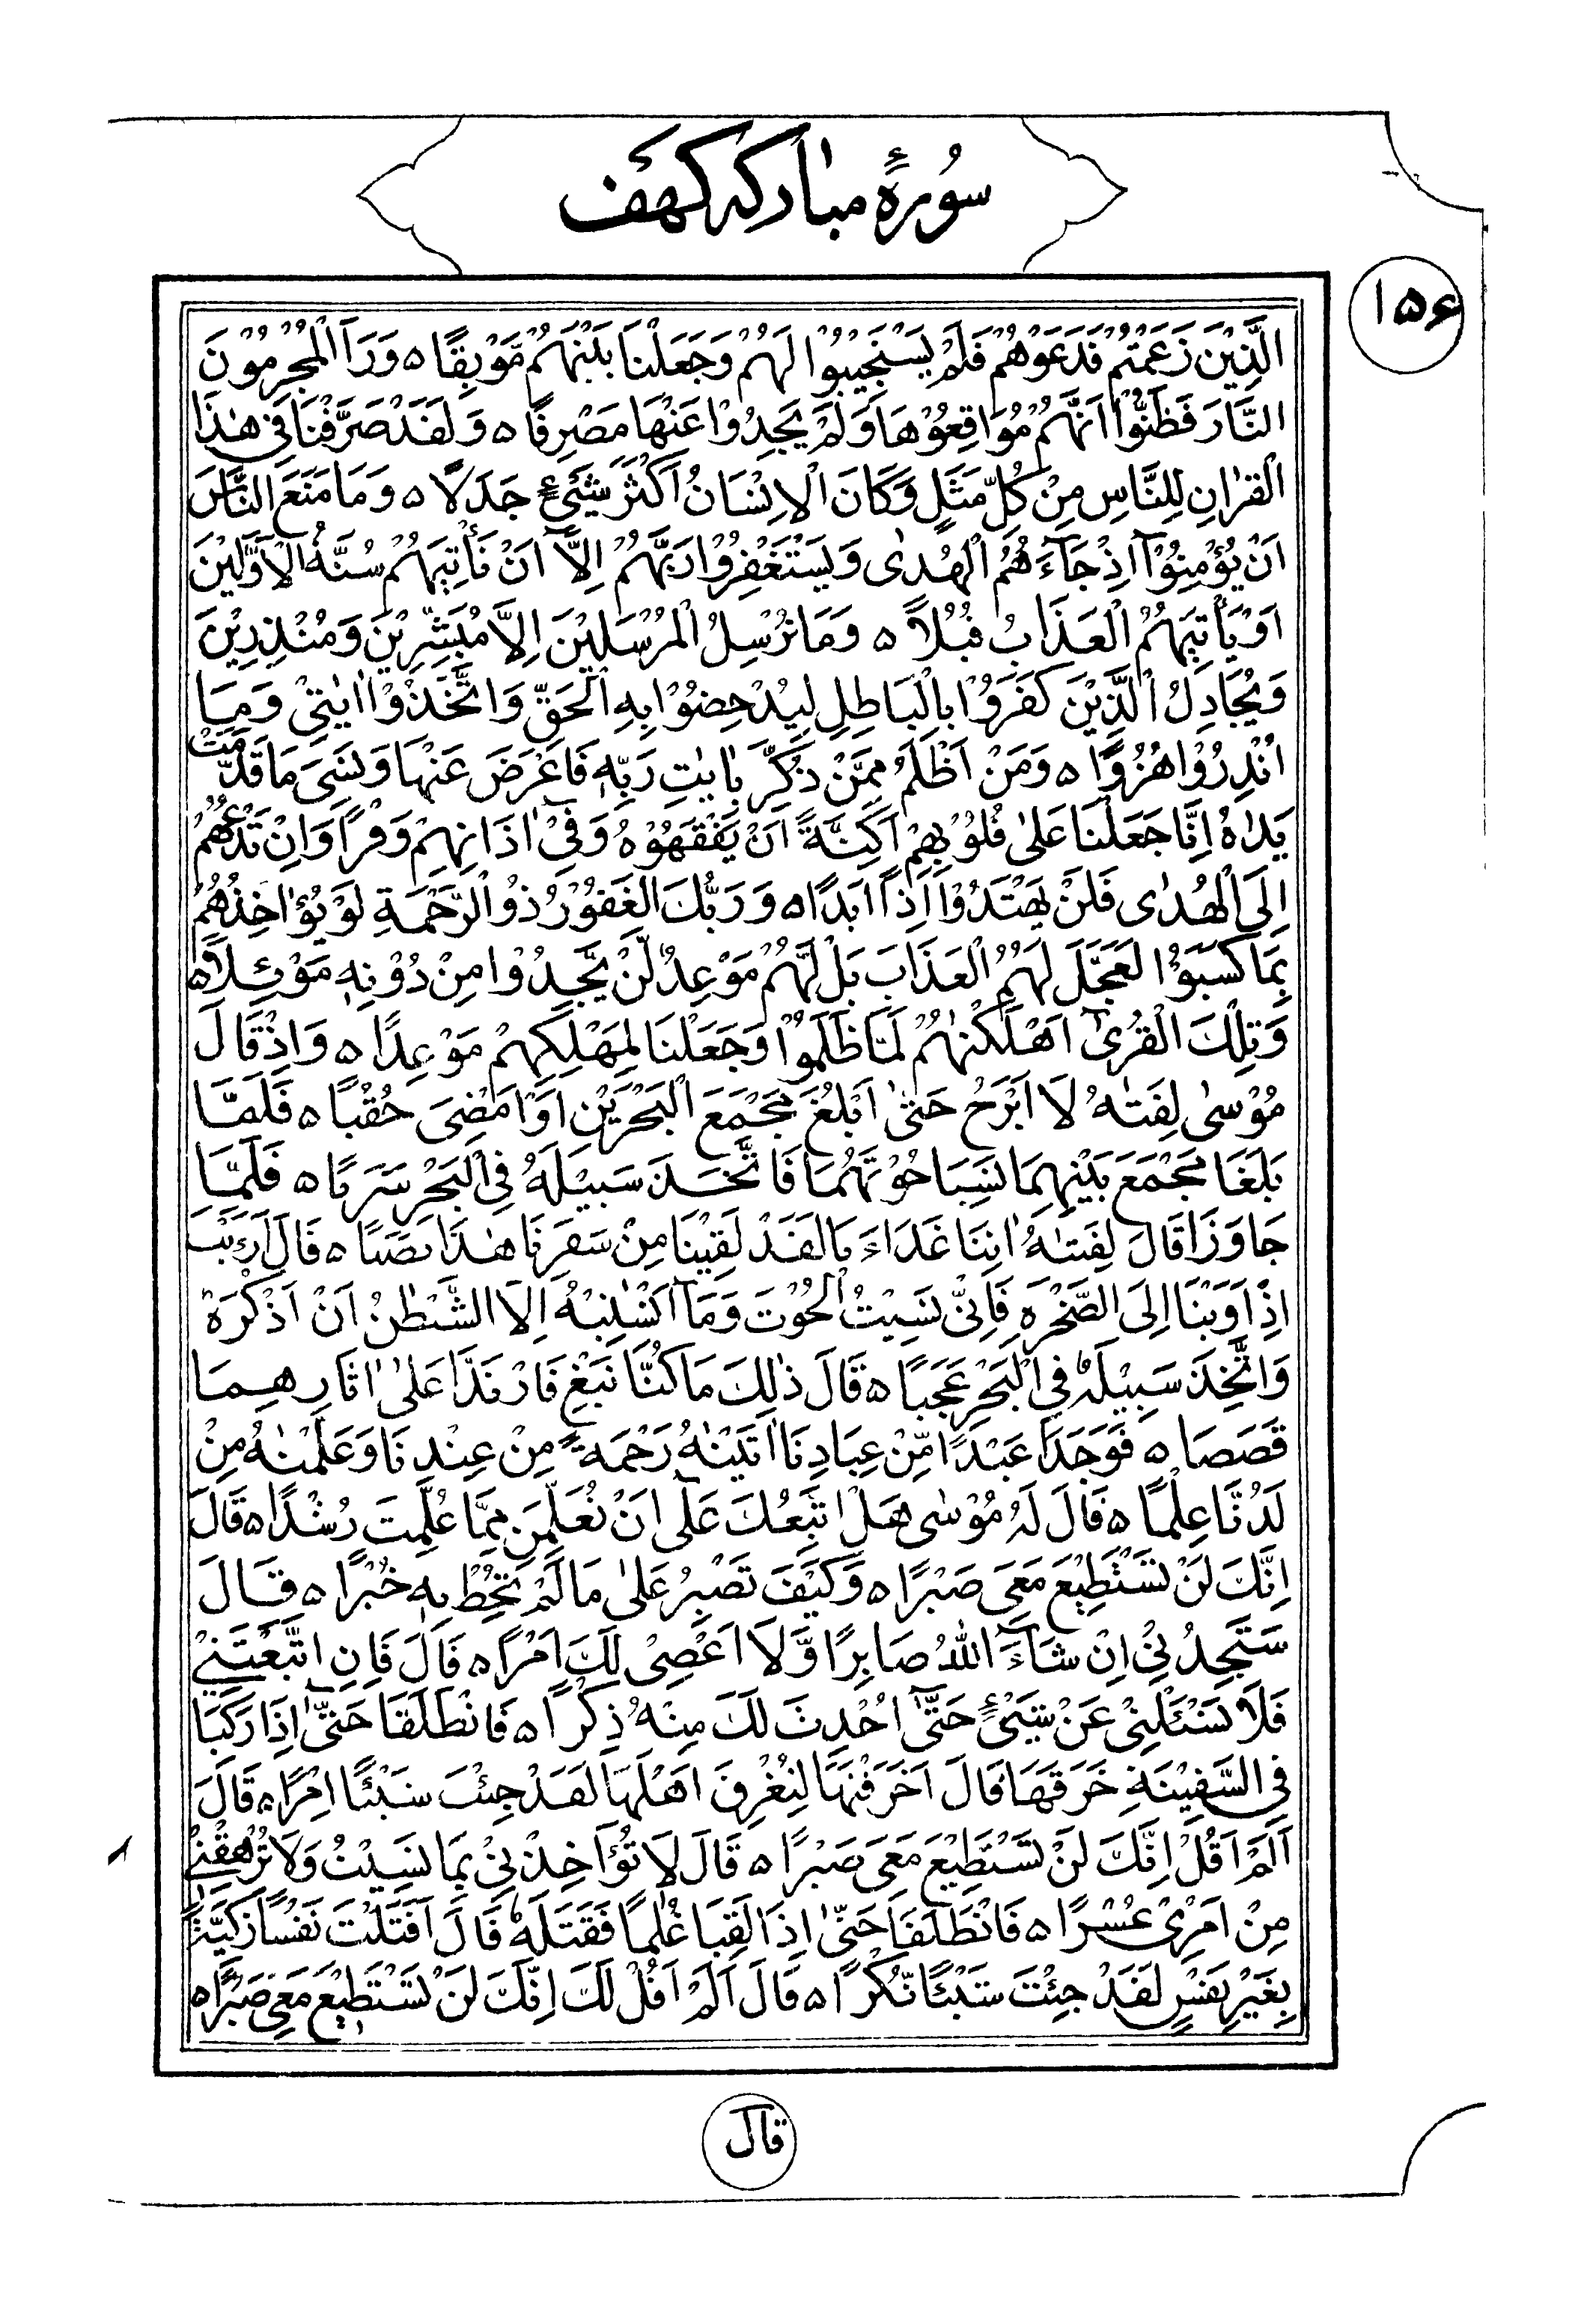 سُورهٔ مبارکه کهَف
۱۵۶
الَّذِیْنَ زَعَمْتُمْ فَدَعَوْهُمْ فَلَمْ یَسْتَجِیْبُوْا لَهُمْ وَجَعَلْنَا بَیْنَهُمْ مَّوْبِقًا ۵ وَرَاَ الْمُجْرِمُوْنَ
النَّارَ فَظَنُّوْٓا اَنَّهُمْ مُوَاقِعُوْهَا وَلَمْ یَجِدُوْا عَنْهَا مَصْرِفًا ۵ وَلَقَدْ صَرَّفْنَا فِیْ هٰذَا
الْقُرْاٰنِ لِلنَّاسِ مِنْ کُلِّ مَثَلٍ وَکَانَ الْاِنْسَانُ اَکْثَرَ شَیْئٍ جَدَلًا ۵ وَمَا مَنَعَ النَّاسَ
اَنْ یُؤْمِنُوْٓا اِذْ جَآءَهُمُ الْهُدٰی وَیَسْتَغْفِرُوْا رَبَّهُمْ اِلَّآ اَنْ تَأْتِیَهُمْ سُنَّةُ الْاَوَّلِیْنَ
اَوْ یَأْتِیَهُمُ الْعَذَابُ قُبُلًا ۵ وَمَا نُرْسِلُ الْمُرْسَلِیْنَ اِلَّا مُبَشِّرِیْنَ وَمُنْذِرِیْنَ
وَیُجَادِلُ الَّذِیْنَ کَفَرُوْا بِالْبَاطِلِ لِیُدْحِضُوْا بِهِ الْحَقَّ وَاتَّخَذُوْٓا اٰیٰتِیْ وَمَا
اُنْذِرُوْا هُزُوًا ۵ وَمَنْ اَظْلَمُ مِمَّنْ ذُکِّرَ بِاٰیٰتِ رَبِّهٖ فَاَعْرَضَ عَنْهَا وَنَسِیَ مَا قَدَّمَتْ
یَدٰاهُ اِنَّا جَعَلْنَا عَلٰی قُلُوْبِهِمْ اَکِنَّةً اَنْ یَفْقَهُوْهُ وَفِیْٓ اٰذَانِهِمْ وَقْرًا وَاِنْ تَدْعُهُمْ
اِلَی الْهُدٰی فَلَنْ یَهْتَدُوْٓا اِذًا اَبَدًا ۵ وَرَبُّكَ الْغَفُوْرُ ذُو الرَّحْمَةِ لَوْ یُؤٰاخِذُهُمْ
بِمَا کَسَبُوْا لَعَجَّلَ لَهُمُ الْعَذَابَ بَلْ لَّهُمْ مَوْعِدٌ لَّنْ یَّجِدُوْا مِنْ دُوْنِهٖ مَوْئِلًا ۵
وَتِلْكَ الْقُرٰیٓ اَهْلَکْنٰهُمْ لَمَّا ظَلَمُوْا وَجَعَلْنَا لِمَهْلِکِهِمْ مَوْعِدًا ۵ وَاِذْ قَالَ
مُوْسٰی لِفَتٰهُ لَا اَبْرَحُ حَتّٰی اَبْلُغَ مَجْمَعَ الْبَحْرَیْنِ اَوْ اَمْضِیَ حُقُبًا ۵ فَلَمَّا
بَلَغَا مَجْمَعَ بَیْنِهِمَا نَسِیَا حُوْتَهُمَا فَاتَّخَذَ سَبِیْلَهُ فِی الْبَحْرِ سَرَبًا ۵ فَلَمَّا
جَاوَزَا قَالَ لِفَتٰهُ اٰتِنَا غَدَاءَنَا لَقَدْ لَقِیْنَا مِنْ سَفَرِنَا هٰذَا نَصَبًا ۵ قَالَ اَرَءَیْتَ
اِذْ اَوَیْنَا اِلَی الصَّخْرَةِ فَاِنِّیْ نَسِیْتُ الْحُوْتَ وَمَآ اَنْسٰنِیْهُ اِلَّا الشَّیْطٰنُ اَنْ اَذْکُرَهٗ
وَاتَّخَذَ سَبِیْلَهٗ فِی الْبَحْرِ عَجَبًا ۵ قَالَ ذٰلِكَ مَا کُنَّا نَبْغِ فَارْتَدَّا عَلٰٓی اٰثَارِهِمَا
قَصَصًا ۵ فَوَجَدَا عَبْدًا مِّنْ عِبَادِنَا اٰتَیْنٰهُ رَحْمَةً مِنْ عِنْدِنَا وَعَلَّمْنٰهُ مِنْ
لَدُنَّا عِلْمًا ۵ قَالَ لَهُ مُوْسٰی هَلْ اَتَّبِعُكَ عَلٰٓی اَنْ تُعَلِّمَنِ مِمَّا عُلِّمْتَ رُشْدًا ۵ قَالَ
اِنَّكَ لَنْ تَسْتَطِیْعَ مَعِیَ صَبْرًا ۵ وَکَیْفَ تَصْبِرُ عَلٰی مَا لَمْ تُحِطْ بِهٖ خُبْرًا ۵ قَالَ
سَتَجِدُنِیْٓ اِنْ شَآءَ اللهُ صَابِرًا وَّلَا اَعْصِیْ لَكَ اَمْرًا ۵ قَالَ فَاِنِ اتَّبَعْتَنِیْ
فَلَا تَسْئَلْنِیْ عَنْ شَیْئٍ حَتّٰٓی اُحْدِثَ لَكَ مِنْهُ ذِکْرًا ۵ فَانْطَلَقَا حَتّٰٓی اِذَا رَکِبَا
فِی السَّفِیْنَةِ خَرَقَهَا قَالَ اَخَرَقْتَهَا لِتُغْرِقَ اَهْلَهَا لَقَدْ جِئْتَ شَیْئًا اِمْرًا ۵ قَالَ
اَلَمْ اَقُلْ اِنَّكَ لَنْ تَسْتَطِیْعَ مَعِیَ صَبْرًا ۵ قَالَ لَا تُؤَاخِذْنِیْ بِمَا نَسِیْتُ وَلَا تُرْهِقْنِیْ
مِنْ اَمْرِیْ عُسْرًا ۵ فَانْطَلَقَا حَتّٰی اِذَا لَقِیَا غُلٰمًا فَقَتَلَهٗ قَالَ اَقَتَلْتَ نَفْسًا زَکِیَّةً
بِغَیْرِ نَفْسٍ لَقَدْ جِئْتَ شَیْئًا نُّکْرًا ۵ قَالَ اَلَمْ اَقُلْ لَكَ اِنَّكَ لَنْ تَسْتَطِیْعَ مَعِیَ صَبْرًا ۵
قال